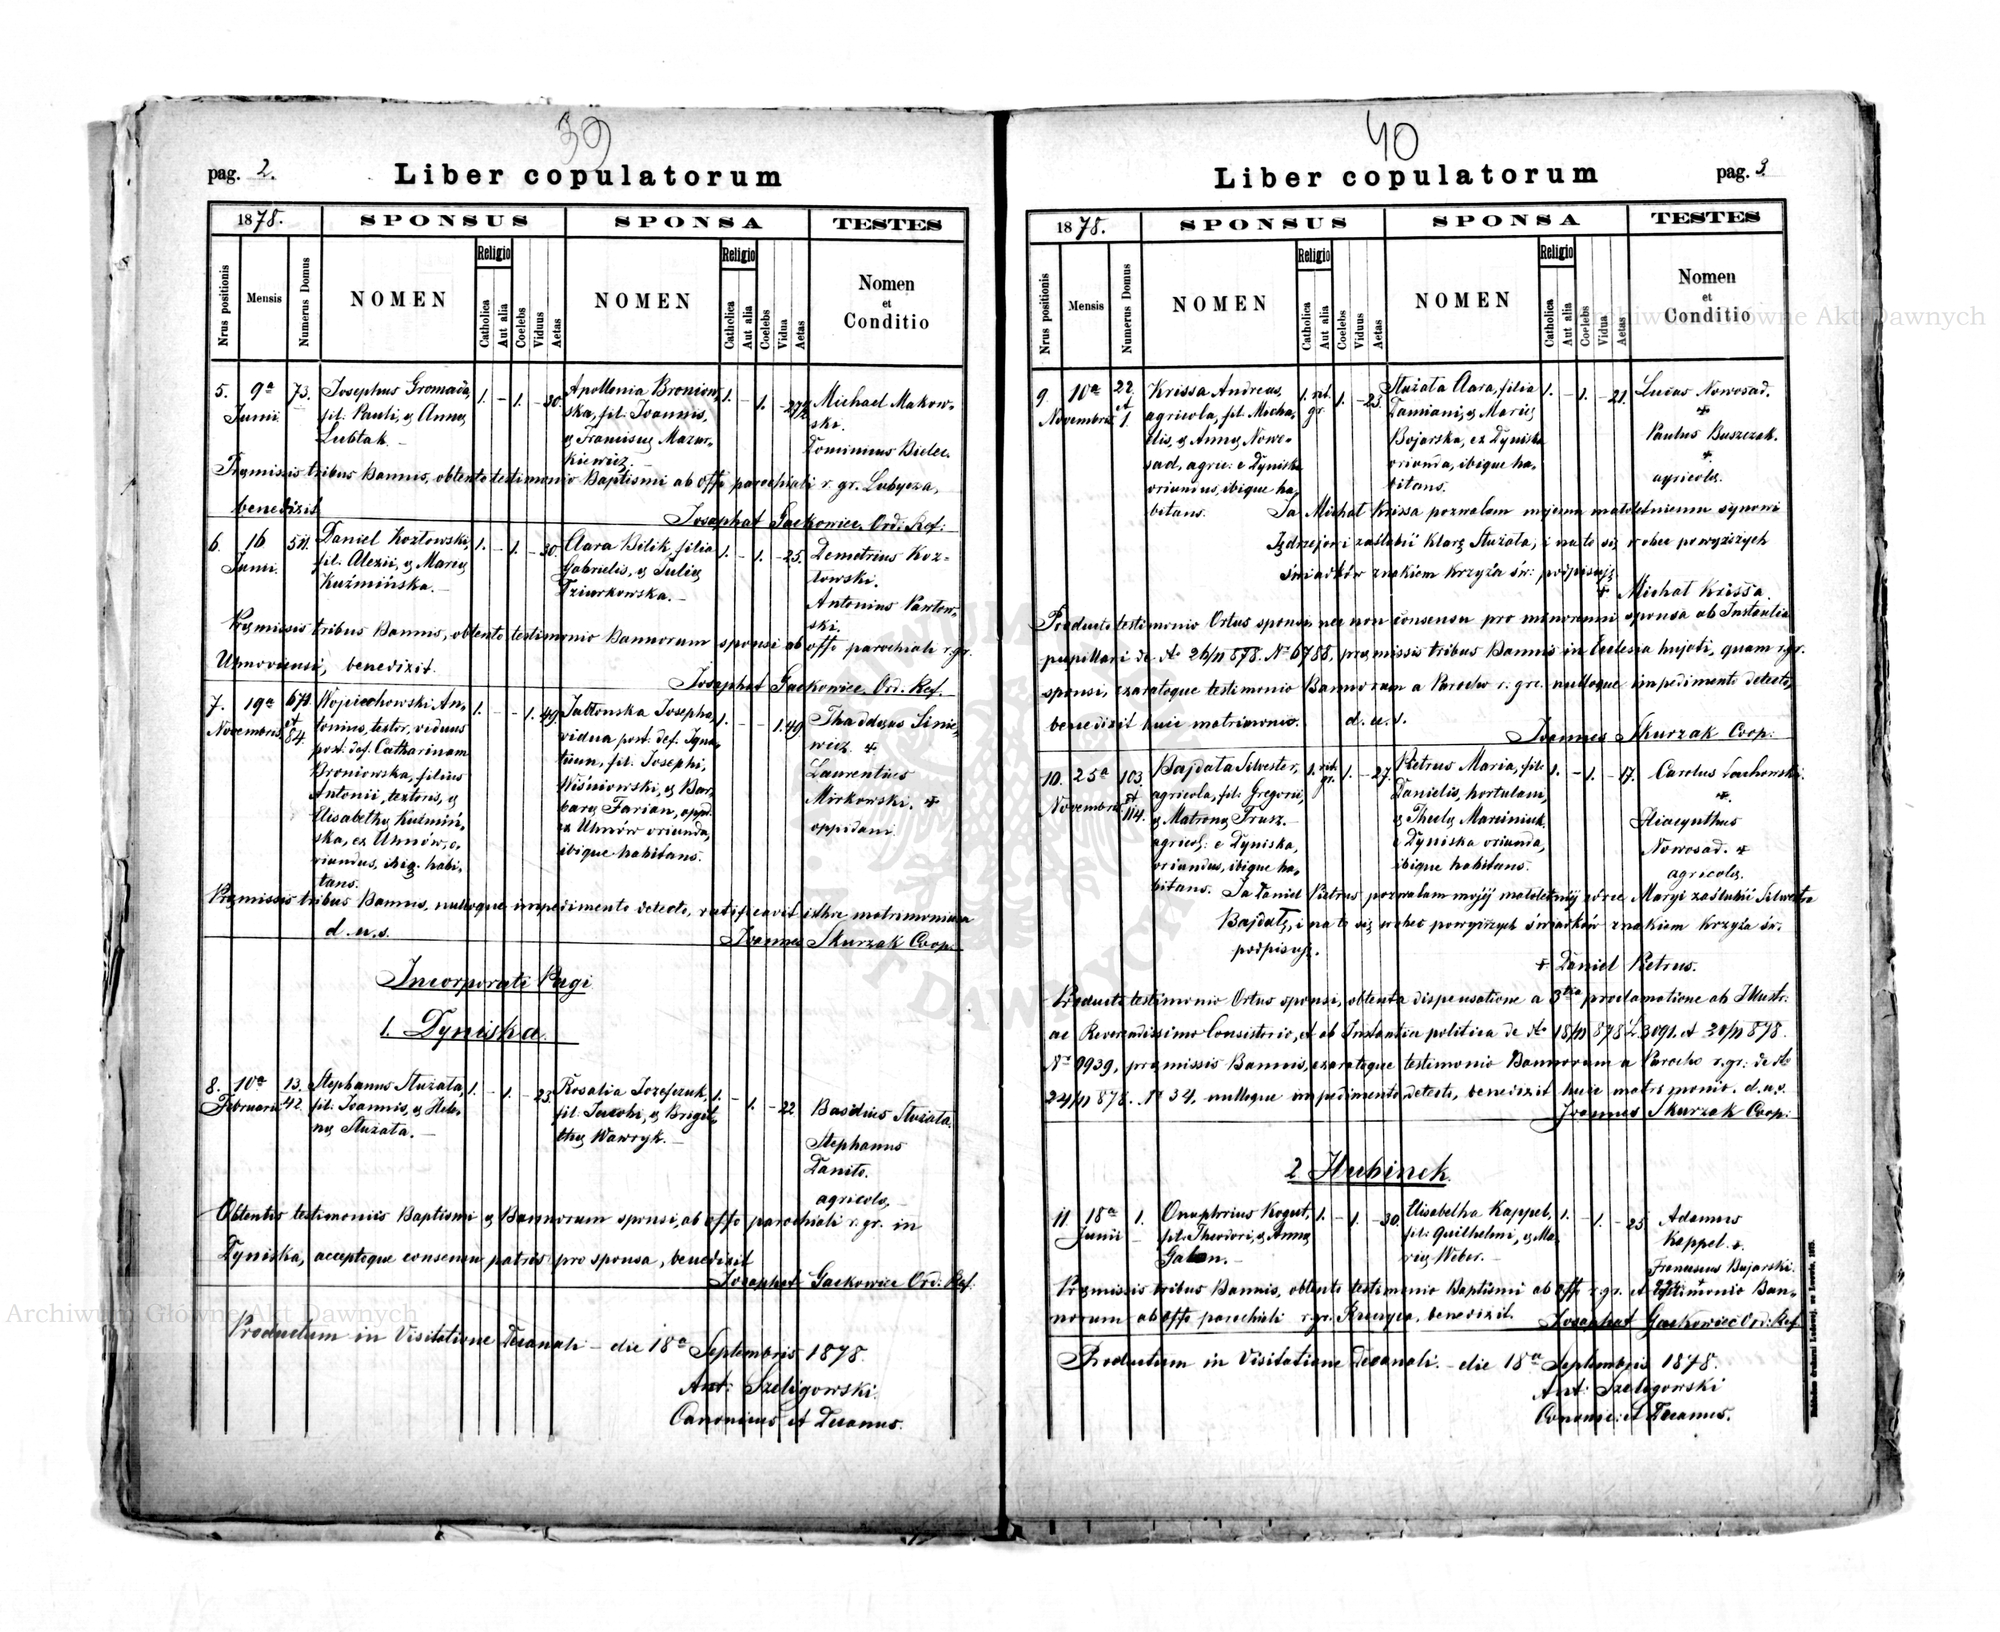 39
pag. 2.
Liber copulatorum
1878.
SPONSUS
SPONSA
TESTES
Nrus positionis
Mensis
Numerus Domus
NOMEN
Religio
Catholica
Aut alia
Coelebs
Viduus
Aetas
NOMEN
Religio
Catholica
Aut alia
Coelebs
Vidua
Aetas
Nomen
et
Conditio
5. 9a Junii. 73.
Josephus Gromada,
fil. Pauli, & Annę
Lubtak. –
1. – 1. – 30.
Apollonia Broniow-
ska, fil. Joannis,
& Franciscę Mazur-
kiewicz. –
1. – 1. –
Michael Makow-
ski.
Dominicus Bielec.
Pręmissis tribus Bannis, obtento testimonio Baptismi ab offo parochiali r. gr. Lubycza,
benedixit
Josaphat Gackowiec Ord: Ref:
6. 16 Junii.
Daniel Kozłowski,
fil. Alexii, & Marię
Kuźmińska. –
1. – 1. – 30.
Clara Bilik, filia
Gabrielis, & Julię
Dziurkowska. –
1. – 1. – 25.
Demetrius Koz-
łowski.
Antonius Pawłow-
ski.
Pręmissis tribus Bannis, obtento testimonio Bannorum sponsi ab offo parochiali r. gr.
Uhnoviensi, benedixit.
Josephat Gackowiec Ord. Ref.
7. 19a Novembris et 84.
Wojciechowski An-
tonius, textor, viduus
post. def. Catharinam
Broniowska, filius
Antonii, textoris, &
Elisabethę Kuźmiń-
ska, ex Uhnów, o-
riundus, ibiq. habi-
tans.
1. – – 1. 49.
Jabłonska Josepha,
vidua post. def. Igna-
tium, fil. Josephi,
Wiśniowski, & Bar-
barę Farian, oppid.
ex Uhnów oriunda,
ibique habitans.
1. – – 1. 49.
Thaddęus Sinie-
wicz. +
Laurentius
Mirkowski. +
oppidani.
Pręmissis tribus Bannis, nulloque impedimento detecto, ratificavit isthoc matrimonium
d. u. s.
Joannes Skurzak Coop.
Incorporati Pagi
1. Dyniska.
8. 10a Februarii 13. 42.
Stephanus Służała,
fil. Joannis, & Hele-
nę Służała. –
1. – 1. – 23
Rosalia Jozefczuk,
fil. Jacobi, & Brigit-
thę Wawryk. –
1. – 1. – 22
Basilius Służała.
Stephanus
Daniło.
agricolę. –
Obtentis testimoniis Baptismi & Bannorum sponsi, ab offo parochiali r. gr. in
Dyniska, acceptoque consensu patris pro sponsa, benedixit
Josephat Gackowiec Ord: Ref.
Productum in Visitatione Decanali – die 18a Septembris 1878.
Ant: Szeligowski
Canonicus et Decanus.
40
pag. 3
Liber copulatorum
1878.
SPONSUS
SPONSA
TESTES
Nrus positionis
Mensis
Numerus Domus
NOMEN
Religio
Catholica
Aut alia
Coelebs
Viduus
Aetas
NOMEN
Religio
Catholica
Aut alia
Coelebs
Vidua
Aetas
Nomen
et
Conditio
9. 10a Novembris 22. et 1.
Krissa Andreas,
agricola, fil. Micha-
ëlis, & Annę Nowo-
sad, agric: e Dyniska
oriundus, ibique ha-
bitans.
1. rit. gr. 1. – 23.
Służała Clara, filia
Damiani, & Marię
Bojarska, ex Dyniska
oriunda, ibique ha-
bitans.
1. – 1. – 21.
Lucas Nowosad.
+
Paulus Buszczak.
+
agricolę.
Ja Michał Krissa pozwalam mojemu małoletniemu synowi
Jędrzejowi zaślubić Klarę Służała, i na to się wobec powyższych
świadków znakiem krzyża św: podpisuję
+ Michał Krissa.
Producto testimonio Ortus sponsi, nec non consensu pro minorenni sponso ab Instantia
pupillari de dto 26/10 878. No 6788, pręmissis tribus Bannis in Ecclesia hujati, quam r. gr.
sponsi, exaratoque testimonio Bannorum a Parocho r. gr. nulloque impedimento detecto,
benedixit huic matrimonio. d. u. s.
Joannes Skurzak Coop:
10. 25a Novembris 103. et 114.
Bajdała Silvester,
agricola, fil. Gregorii,
& Matronę Frusz.
agricol: e Dyniska,
oriundus, ibique ha-
bitans.
1. rit. gr. 1. – 27.
Pietrus Maria, fil.
Danielis, hortulani,
& Theclę Marciniuk,
e Dyniska oriunda,
ibique habitans.
1. – 1. – 17.
Carolus Lachowski.
+.
Hiacynthus
Nowosad. +
agricolę.
Ja Daniel Pietrus pozwalam mojej małoletniej córce Maryi zaślubić Silwestra
Bajdałę, i na to się wobec powyższych świadków znakiem krzyża św.
podpisuję.
+ Daniel Pietrus.
Producto testimonio Ortus sponsi, obtenta dispensatione a 3tia proclamatione ab Illustr:
ac Reverendissimo Consistorio, et ab Instantia politica de dto 18/11 878 L. 3091. et 20/11 878.
No 9939, pręmissis Bannis, exaratoque testimonio Bannorum a Parocho r. gr. de dto
24/11 878. No 34. nulloque impedimento detecto, benedixit huic matrimonio. d. u. s.
Joannes Skurzak Coop:
2 Hubinek.
11. 18a Junii 1.
Onuphrius Kogut,
fil. Theodori, & Annę
Galan. –
1. – 1. – 30.
Elisabetha Kappel,
fil. Guilhelmi, & Ma-
rię Weber. –
1. – 1. – 25
Adamus
Kappel. +.
Franciscus Bujarski.
+
Pręmissis tribus Bannis, obtento testimonio Baptismi ab offo r. gr. et testimonio Ban-
norum ab offo parochiali r. gr. benedixit. Josaphat Gackowiec Ord: Ref.
Productum in Visitatione Decanali. – die 18a Septembris 1878.
Ant: Szeligowski
Canonic: et Decanus.
Archiwum Główne Akt Dawnych
Archiwum Główne Akt Dawnych